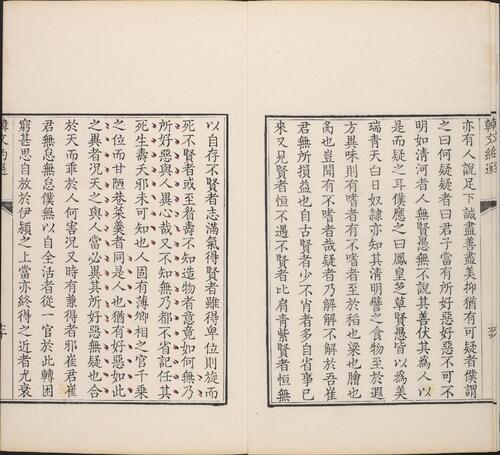 韓文約選
亦有人說足下誠盡善盡美抑猶有可疑者僕謂
之曰何疑疑者曰君子當有所好惡好惡不可不
明如清河者人無賢愚無不說其善伏其為人以
是而疑之耳僕應之曰鳳皇芝草賢愚皆以為美
瑞青天白日奴隸亦知其清明譬之食物至於遐
方異味則有嗜者有不嗜者至於稻也粱也膾也
炙也豈聞有不嗜者哉疑者乃解解不解於吾崔
君無所損益也自古賢者少不肖者多自省事已
來又見賢者恒不遇不賢者比肩青紫賢者恒無
以自存不賢者志滿氣得賢者雖得卑位則旋而
死不賢者或至眉壽不知造物者意竟如何無乃
所好惡與人異心哉又不知無乃都不省記任其
死生壽夭邪未可知也人固有薄卿相之官千乘
之位而甘陋巷菜羹者同是人也猶有好惡如此
之異者況天之與人當必異其所好惡無疑也合
於天而乖於人何害況又時有兼得者邪崔君崔
君無怠無怠僕無以自全活者從一官於此轉困
窮甚思自放於伊潁之上當亦終得之近者尤衰
韓文約選